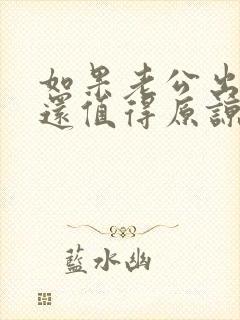 如果老公出
還值得原諒
藍水幽